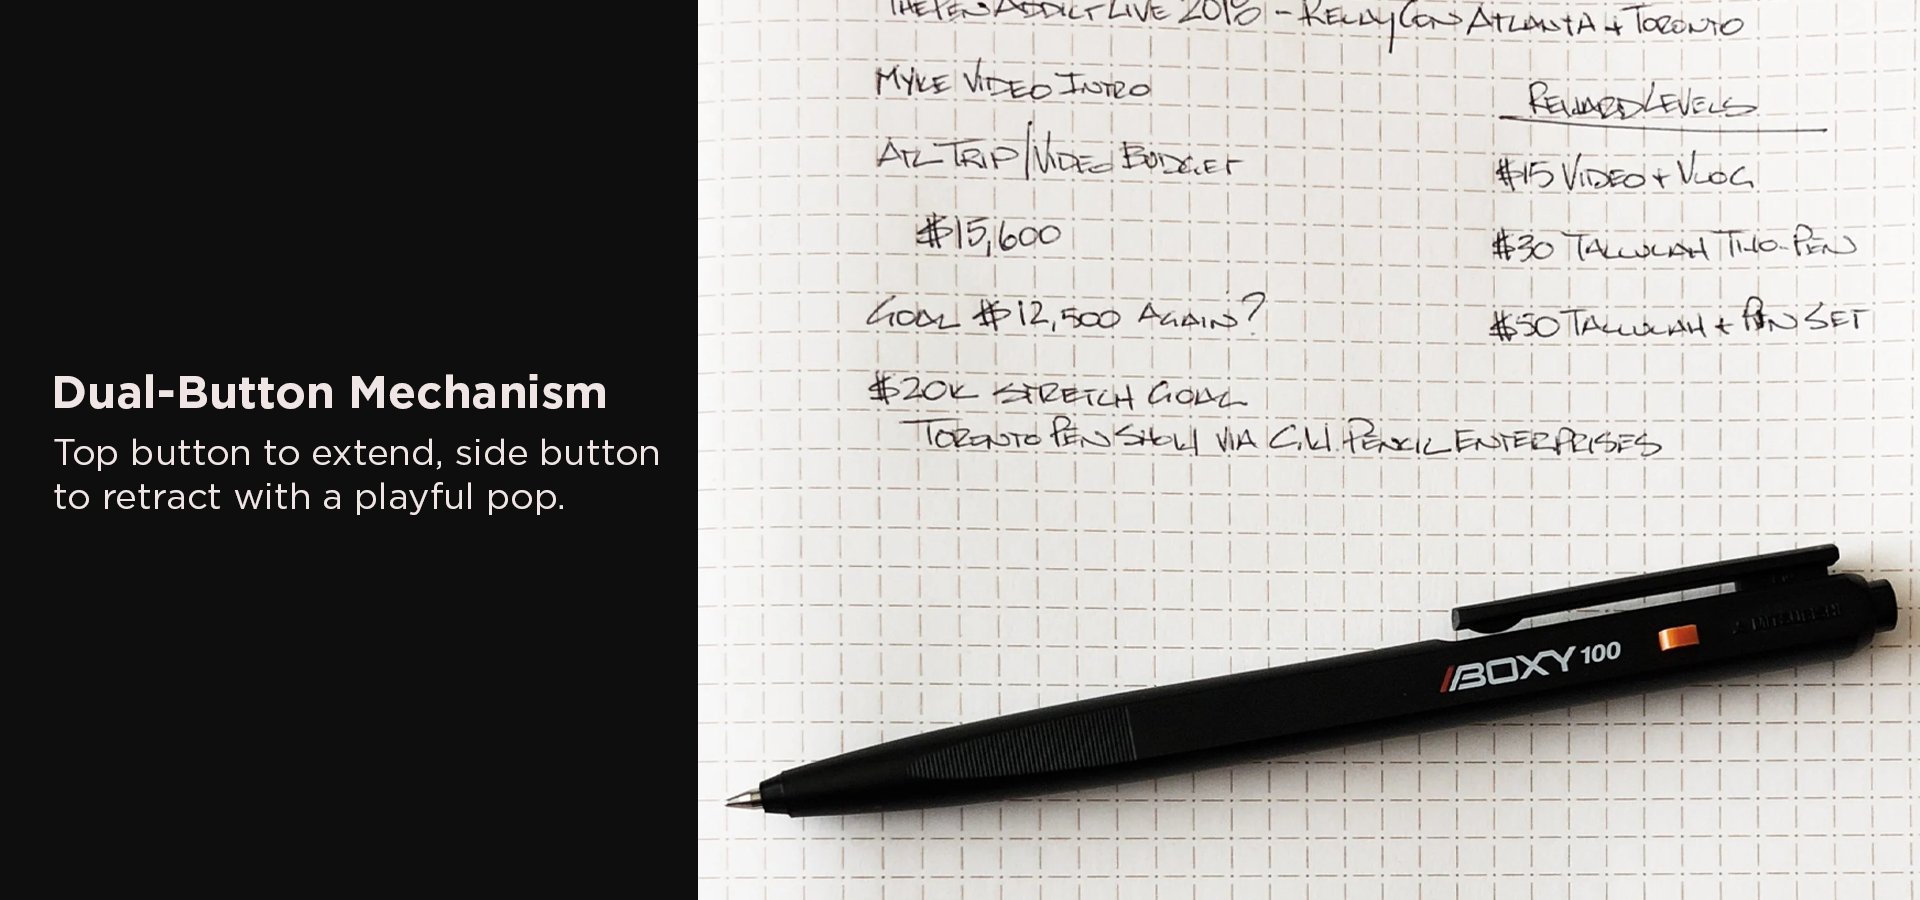 Dual-Button Mechanism
Top button to extend, side button
to retract with a playful pop.
THE PEN ADDICT LIVE 2018 - RELAYCON ATLANTA + TORONTO
MYKE VIDEO INTRO
ATL TRIP/VIDEO BUDGET
$15,600
GOAL $12,500 AGAIN?
$20K STRETCH GOAL
TORONTO PEN SHOW VIA C.W. PENCIL ENTERPRISES
REWARD LEVELS
$15 VIDEO + VLOG
$30 TALLULAH TWO-PEN
$50 TALLULAH + PEN SET
BOXY 100
MITSUBISHI